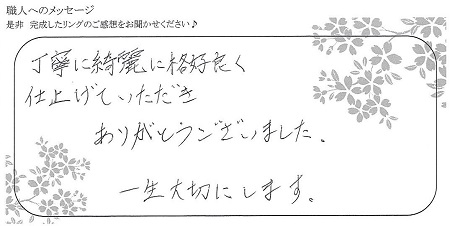 職人へのメッセージ
是非 完成したリングのご感想をお聞かせください♪
丁寧に綺麗に格好良く
仕上げていただき
ありがとうございました。
一生大切にします。